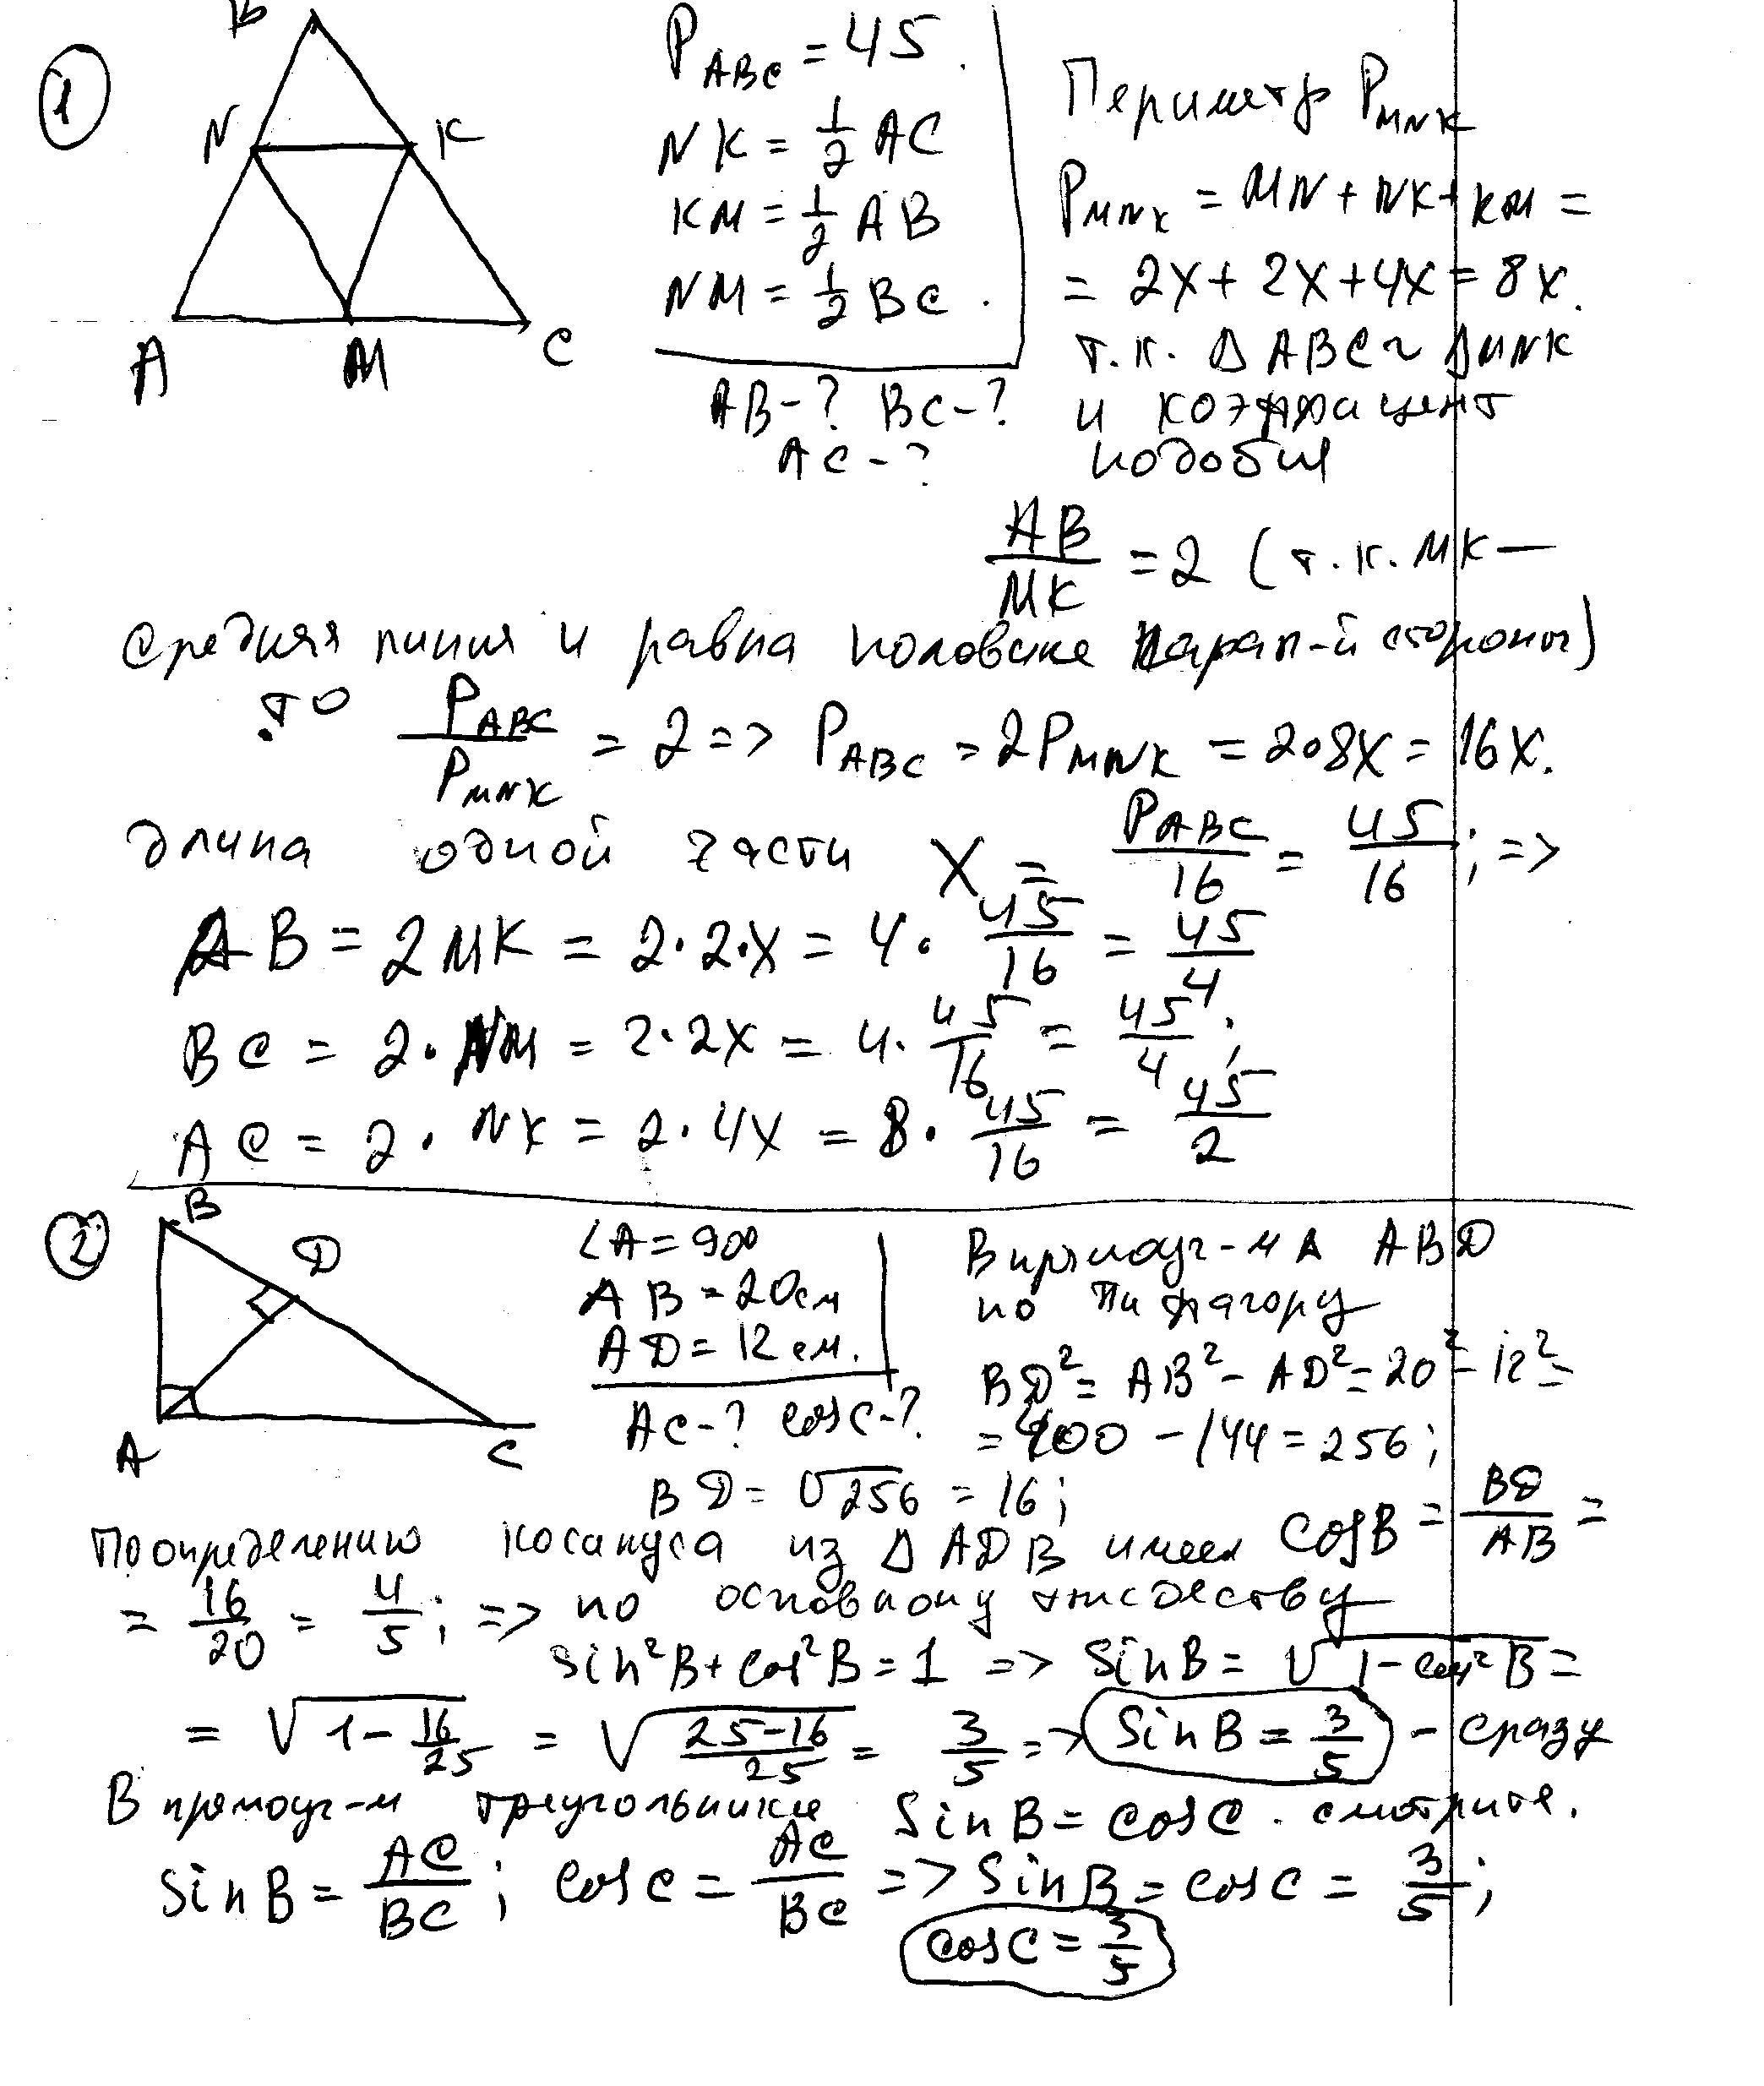 1
B
N K
A M C
P_ABC = 45.
NK = 1/2 AC
KM = 1/2 AB
NM = 1/2 BC.
AB-? BC-?
AC-?
Периметр P_MNK
P_MNK = MN + NK + KM =
= 2x + 2x + 4x = 8x.
т.к. Δ ABC ~ Δ MNK
и коэффицент
подобия
AB/MK = 2 (т.к. MK —
средняя линия и равна половине парал-й стороны)
то P_ABC/P_MNK = 2 => P_ABC = 2P_MNK = 2·8x = 16x.
длина одной части X = P_ABC/16 = 45/16; =>
AB = 2MK = 2·2·x = 4·45/16 = 45/4
BC = 2·NM = 2·2x = 4·45/16 = 45/4;
AC = 2·NK = 2·4x = 8·45/16 = 45/2
2
B
D
A C
∠A = 90°
AB = 20см
AD = 12см.
AC-? cosC-?
В прямоуг-м Δ ABD
по Пифагору
BD² = AB² - AD² = 20² - 12² =
= 400 - 144 = 256;
BD = √256 = 16;
По определению косинуса из Δ ADB имеем cosB = BD/AB =
= 16/20 = 4/5; => по основному тождеству
sin²B + cos²B = 1 => sinB = √(1-cos²B) =
= √(1 - 16/25) = √((25-16)/25) = 3/5 => sinB = 3/5 - сразу
В прямоуг-м треугольнике sinB = cosC. смотрите.
sinB = AC/BC; cosC = AC/BC => sinB = cosC = 3/5;
cosC = 3/5